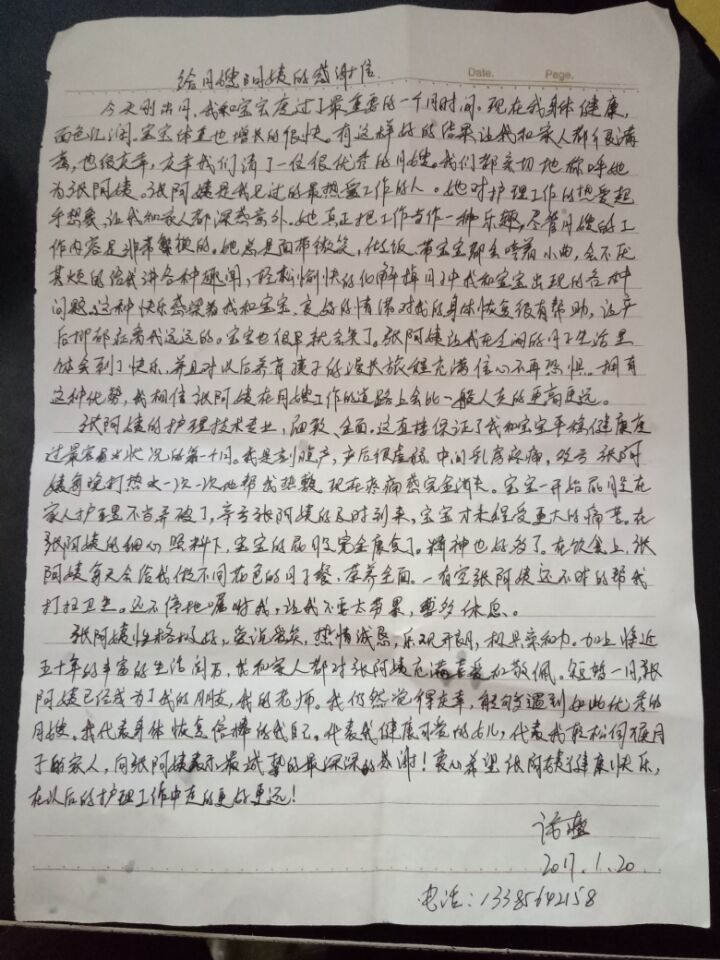 Date.    Page.
给月嫂张阿姨的感谢信
今天刚出月,我和宝宝度过了最重要的一个月时间。现在我身体健康,
面色红润。宝宝体重也增长的很快。有这样好的结果让我和家人都很满
意,也很庆幸,庆幸我们请了一位很优秀的月嫂。我们都亲切地称呼她
为张阿姨。张阿姨是我见过的最热爱工作的人。她对护理工作的热爱超
乎想象,让我和家人都深感意外。她真正把工作当作一种乐趣,尽管月嫂的工
作内容是非常繁琐的。她总是面带微笑,做饭、带宝宝都会哼着小曲,会不厌
其烦的给我讲各种趣闻,轻松愉快的化解掉月子中我和宝宝出现的各种
问题。这种快乐感染着我和宝宝。良好的情绪对我的身体恢复很有帮助,让产
后抑郁症离我远远的。宝宝也很早就会笑了。张阿姨让我在的月子生活里
体会到了快乐,并且对以后养育孩子的漫长旅程充满信心不再恐惧。拥有
这种优势,我相信张阿姨在月嫂工作的道路上会比一般人走的更高更远。
张阿姨的护理技术专业,细致、全面。这直接保证了我和宝宝平稳健康度
过最容易出状况的第一个月。我是剖腹产,产后很虚弱,中间乳房疼痛,多亏张阿
姨每晚打热水一次一次地帮我热敷,现在疼痛感完全消失。宝宝一开始脐在
家人护理不当弄破了,幸亏张阿姨的及时到来,宝宝才未经受更大的痛苦。在
张阿姨的细心照料下,宝宝的完全康复了。精神也好多了。在饮食上,张
阿姨每天会给我做不同花色的月子餐,营养全面。一有空张阿姨还不时的帮我
打扫卫生。还不停地嘱咐我,让我不要太劳累,要多休息。
张阿姨性格极好,爱说爱笑,热情诚恳,乐观开朗,极具亲和力。加上将近
五十年的丰富的生活阅历,我和家人都对张阿姨充满喜爱和敬佩。短暂一月张
阿姨已经成为了我的朋友,我的老师。我仍然觉得庆幸,能够遇到如此优秀的
月嫂。我代表身体恢复倍棒的我自己。代表我健康可爱的女儿,代表我轻松伺候月
子的家人,向张阿姨表示最诚挚的最深深的感谢!衷心希望张阿姨健康快乐,
在以后的护理工作中走的更好更远!
2017.1.20.
电话:13385642158